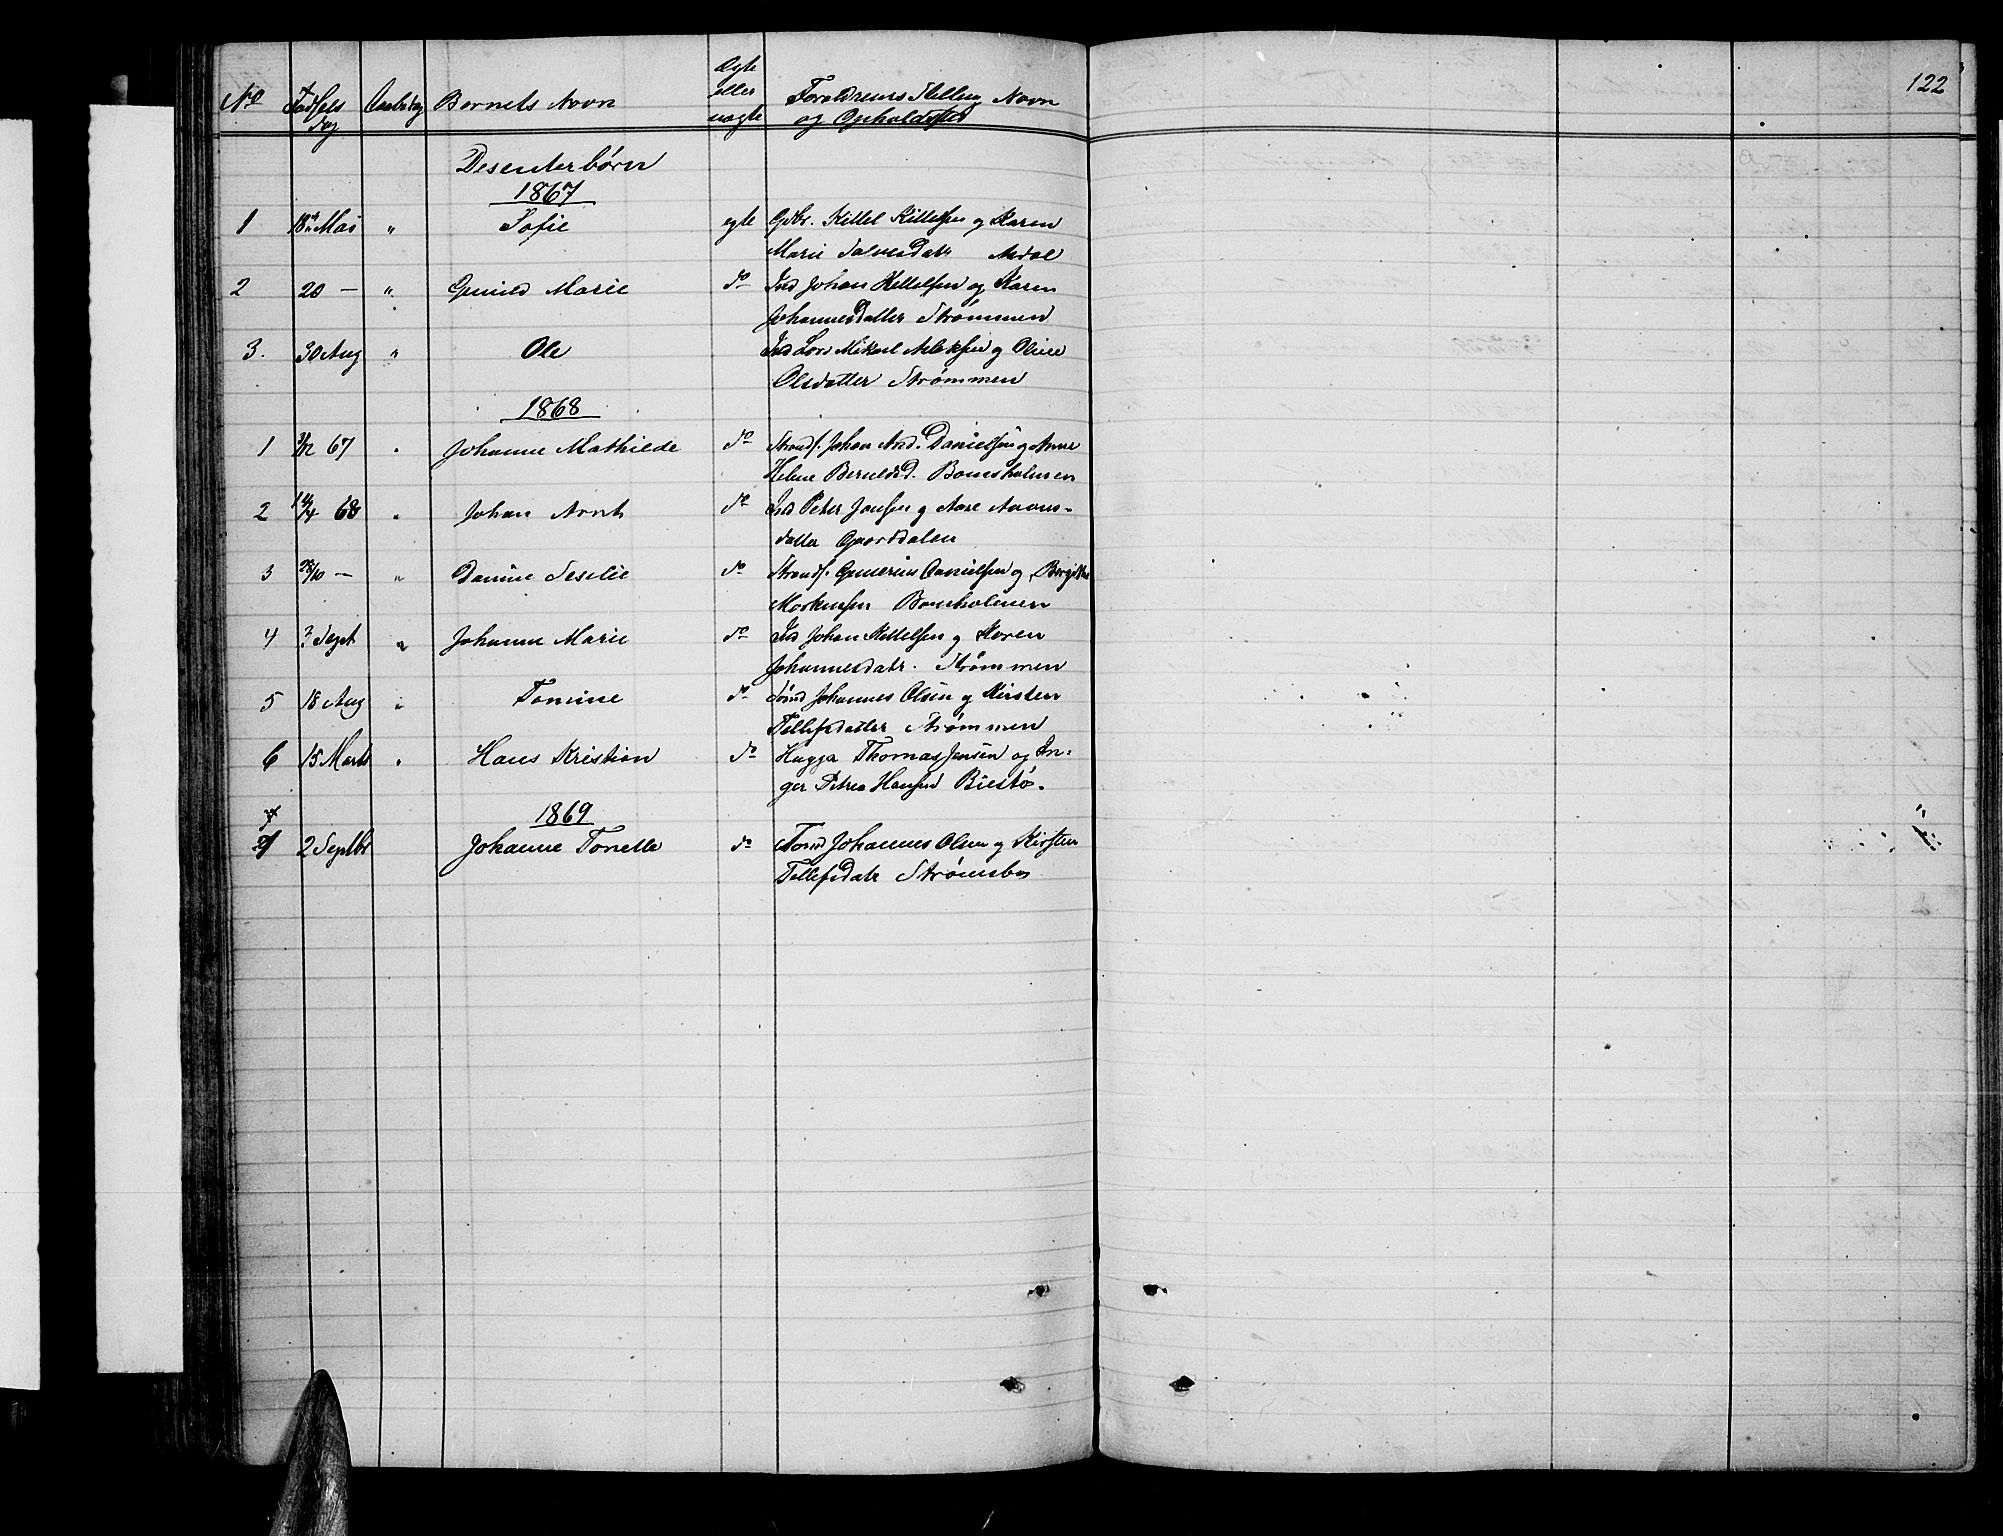 122
Ægte
No Fødsels Daabsdag Barnets Navn eller Forældrenes Stilling Navn
dag uægte og Opholdssted
Desenterbørn
1867
1 18de Mai " Sofie egte Gdbr. Kittel Kittelsen og Karen
Marie Salvesdatr
2 20 — " Gunild Marie do Ind Johan Kittelsen og Karen
Johannesdatter Strømmen
3. 30 Aug " Ole Ind Lars Mikael Aslaksen og Oline
Olsdatter Strømmen
1868
1 67 " Johanne Mathilde do Strands. Johan And. Danielsen og Anne
Helene Berntsd. Bomsholmen
2 68 " Johan Arnt do Ind Peter Jensen og Aase
datter
3 28/10 — " Danine Seselie do Strands. Gunerius Danielsen og Birgitte
Bomsholmen
4 3 Sept " Johanne Marie do Ind Johan Kittelsen og Karen
Johannesdatr. Strømmen
5 18 Aug " Tomine do Johannes Olsen og Kirsten
Tellefsdatter Strømmen
6 15 Marts " Hans Kristian do Thomas Jensen og In-
ger Petrea Hansend Biestø.
1869
1 2 Septbr Johanne Tonette do Johannes Olsen og Kirsten
Tellefsdatr Strømsbu